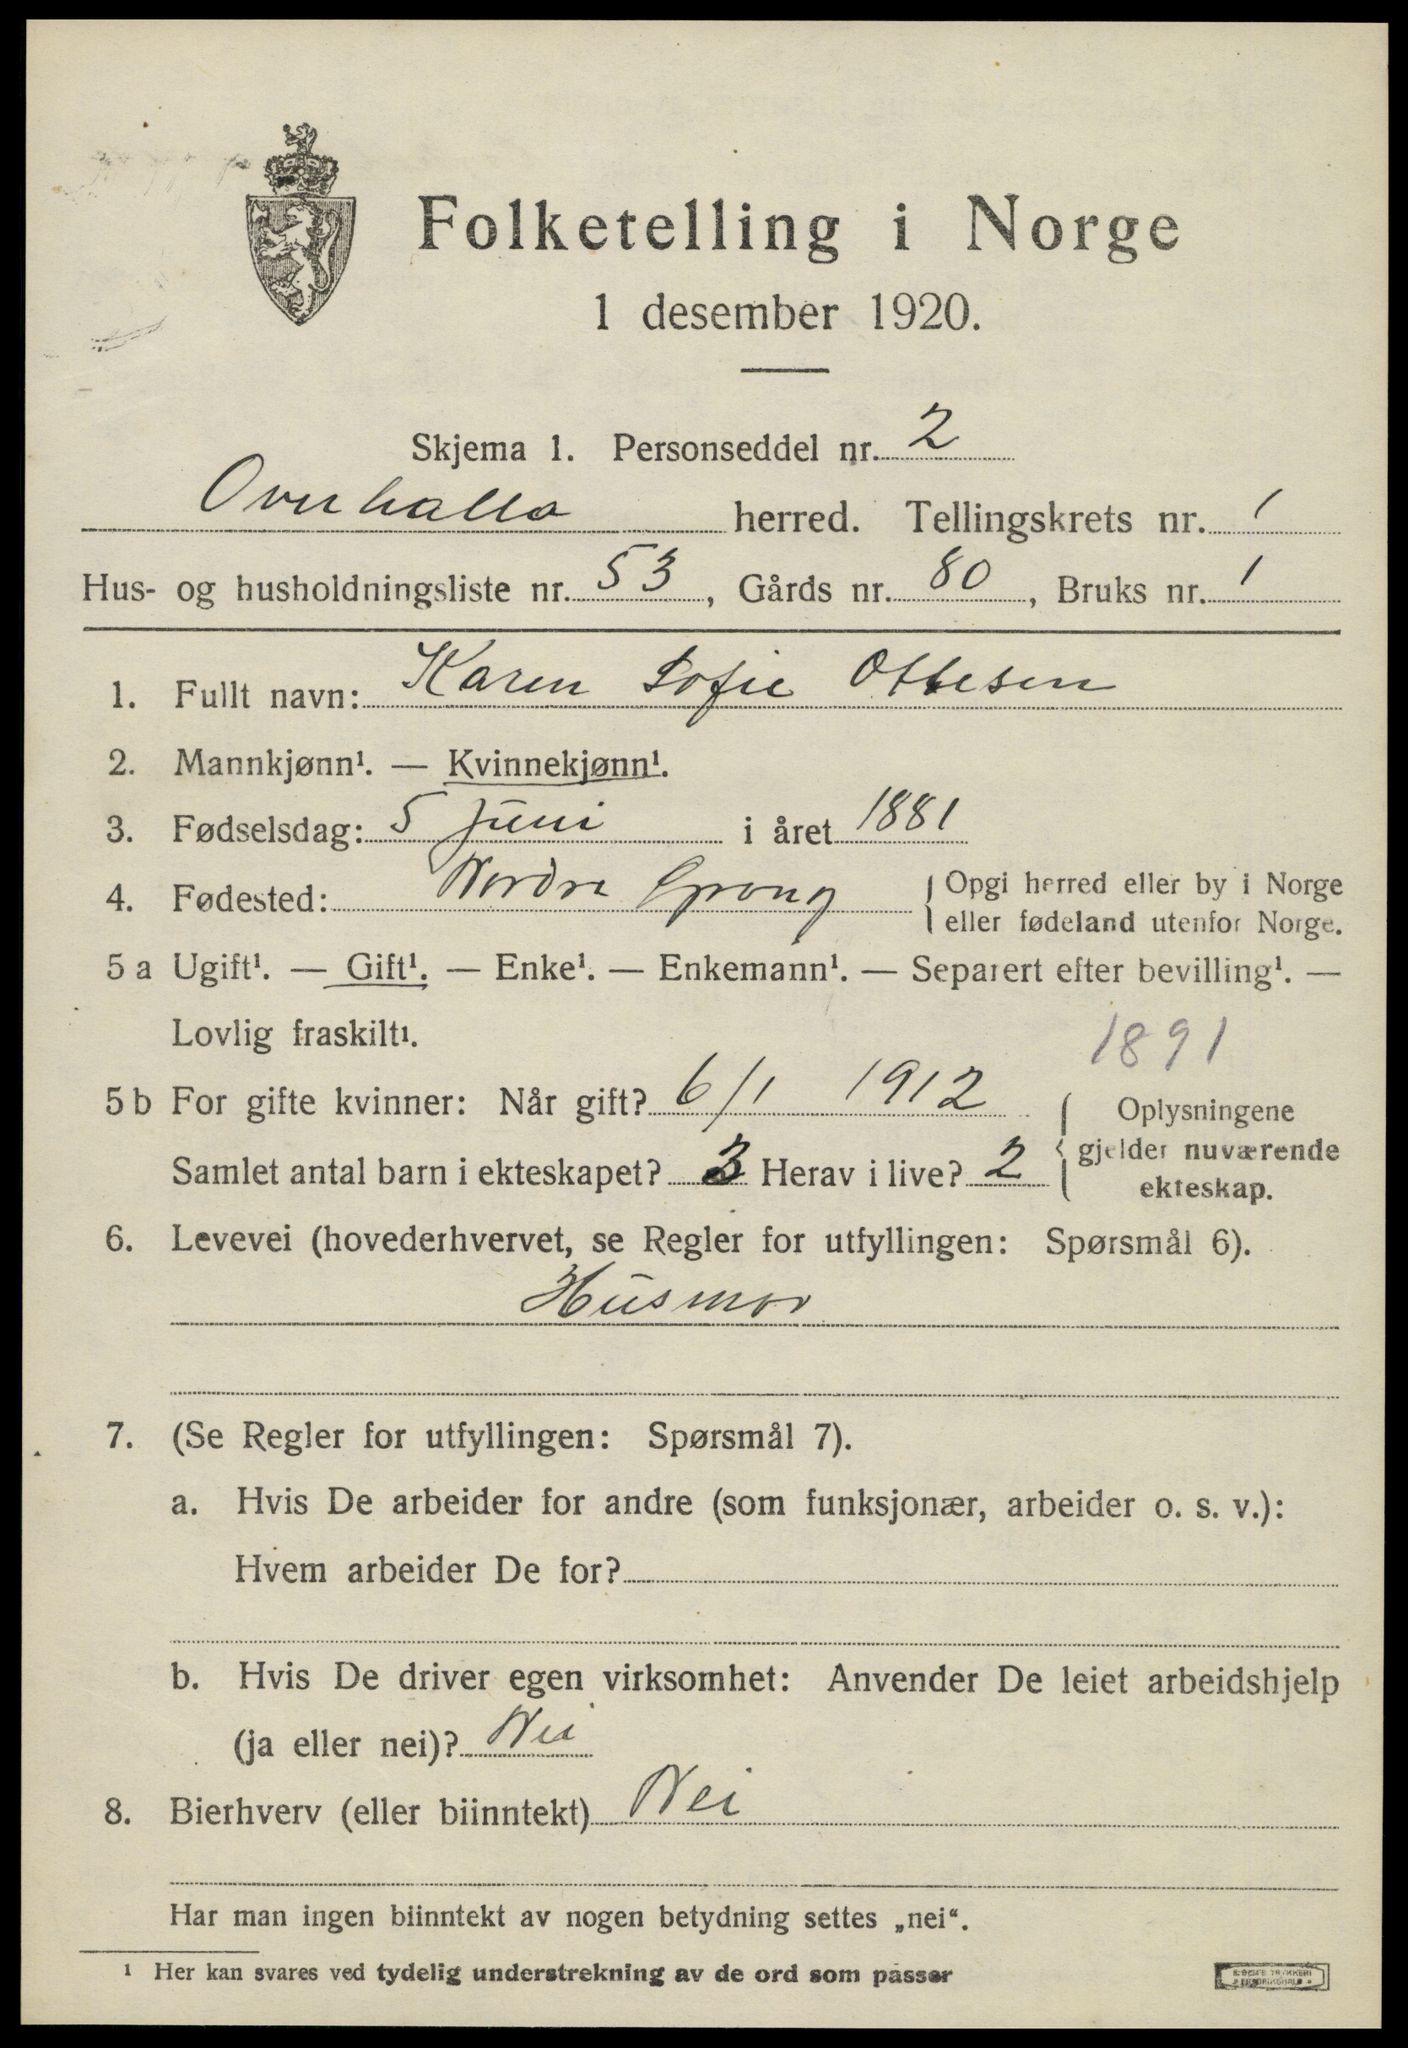 Folketelling i Norge
1 desember 1920.
Skjema 1. Personseddel nr. 2
Overhalla herred. Tellingskrets nr. 1
Hus- og husholdningsliste nr. 53, Gårds nr. 80, Bruks nr. 1
1. Fullt navn: Karen Sofie Ottesen
2. Mannkjønn¹. — Kvinnekjønn¹.
3. Fødselsdag: 5 Juni i året 1881
4. Fødested: Nordre Grong { Opgi herred eller by i Norge
eller fødeland utenfor Norge.
5 a Ugift¹. — Gift¹. — Enke¹. — Enkemann¹. — Separert efter bevilling¹. —
Lovlig fraskilt¹.
1891
5 b For gifte kvinner: Når gift? 6/1 1912
Samlet antal barn i ekteskapet? 3 Herav i live? 2
{ Oplysningene
gjelder nuværende
ekteskap.
6. Levevei (hovederhvervet, se Regler for utfyllingen: Spørsmål 6).
Husmor
7. (Se Regler for utfyllingen: Spørsmål 7).
a. Hvis De arbeider for andre (som funksjonær, arbeider o. s. v.):
Hvem arbeider De for?
b. Hvis De driver egen virksomhet: Anvender De leiet arbeidshjelp
(ja eller nei)? Nei
8. Bierhverv (eller biinntekt) Nei
Har man ingen biinntekt av nogen betydning settes „nei“.
¹ Her kan svares ved tydelig understrekning av de ord som passer